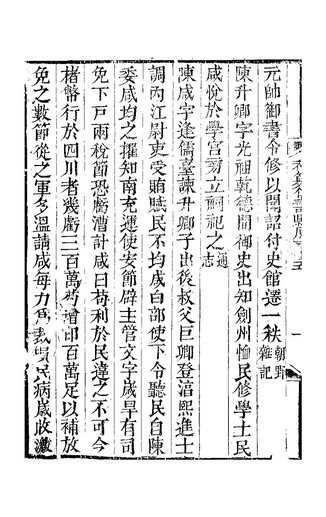 元帥御書令修以聞詔付史館遷一秩朝野雜記
陳升卿字光祖乾德間御史出知劍州恤民修學士民
咸悅於學宮立祠祀之通志
陳咸字逢儒臺諫升卿子出後叔父巨卿登淳熙進士
調內江尉吏受賄賦民不均咸白部使下令聽民自陳
委咸均之擢知南充運使安節辟主管文字歲旱有司
免下戶兩稅節恐虧漕計咸曰苟利於民違之不可今
楮幣行於四川者幾虧三百萬增印百萬足以補放
免之數節從之軍多濫請咸每力裁民病歲收激